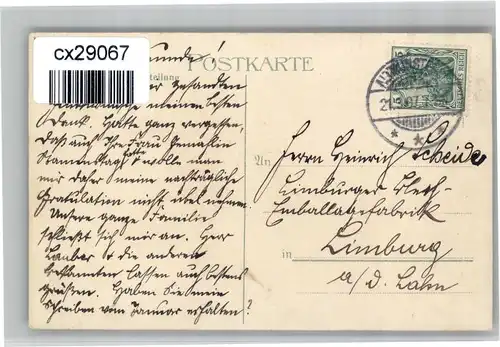 cx29067
POSTKARTE
teilung
gesandten
meinen besten
Dank. Hatte ganz vergessen,
daß auch Ihre Frau Gemahlin
Namenstag hatte & wolle man
mir daher meine nachträgliche
Gratulation nicht übel nehmen.
Unsere ganze Familie
schließt sich mir an. Herr
Lauber & die anderen
Bekannten lassen auch bestens
grüßen. Haben Sie mein
Schreiben vom Januar erhalten?
An Herrn Heinrich Scheide
Limburger Blech-
Emballagefabrik
in Limburg
a/d. Lahn